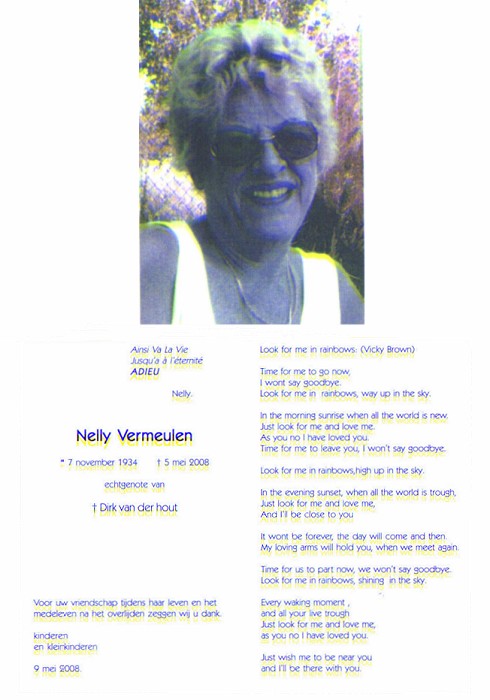 Ainsi Va La Vie
Jusqu'a à l'éternité
ADIEU
Nelly.
Nelly Vermeulen
* 7 november 1934 † 5 mei 2008
echtgenote van
† Dirk van der hout
Voor uw vriendschap tijdens haar leven en het
medeleven na het overlijden zeggen wij u dank.
kinderen
en kleinkinderen
9 mei 2008.
Look for me in rainbows: (Vicky Brown)
Time for me to go now,
I wont say goodbye.
Look for me in rainbows, way up in the sky.
In the morning sunrise when all the world is new.
Just look for me and love me.
As you no I have loved you.
Time for me to leave you, I won't say goodbye.
Look for me in rainbows,high up in the sky.
In the evening sunset, when all the world is trough,
Just look for me and love me,
And I'll be close to you
It wont be forever, the day will come and then
My loving arms will hold you, when we meet again.
Time for us to part now, we won't say goodbye.
Look for me in rainbows, shining in the sky.
Every waking moment ,
and all your live trough
Just look for me and love me,
as you no I have loved you.
Just wish me to be near you
and I'll be there with you.